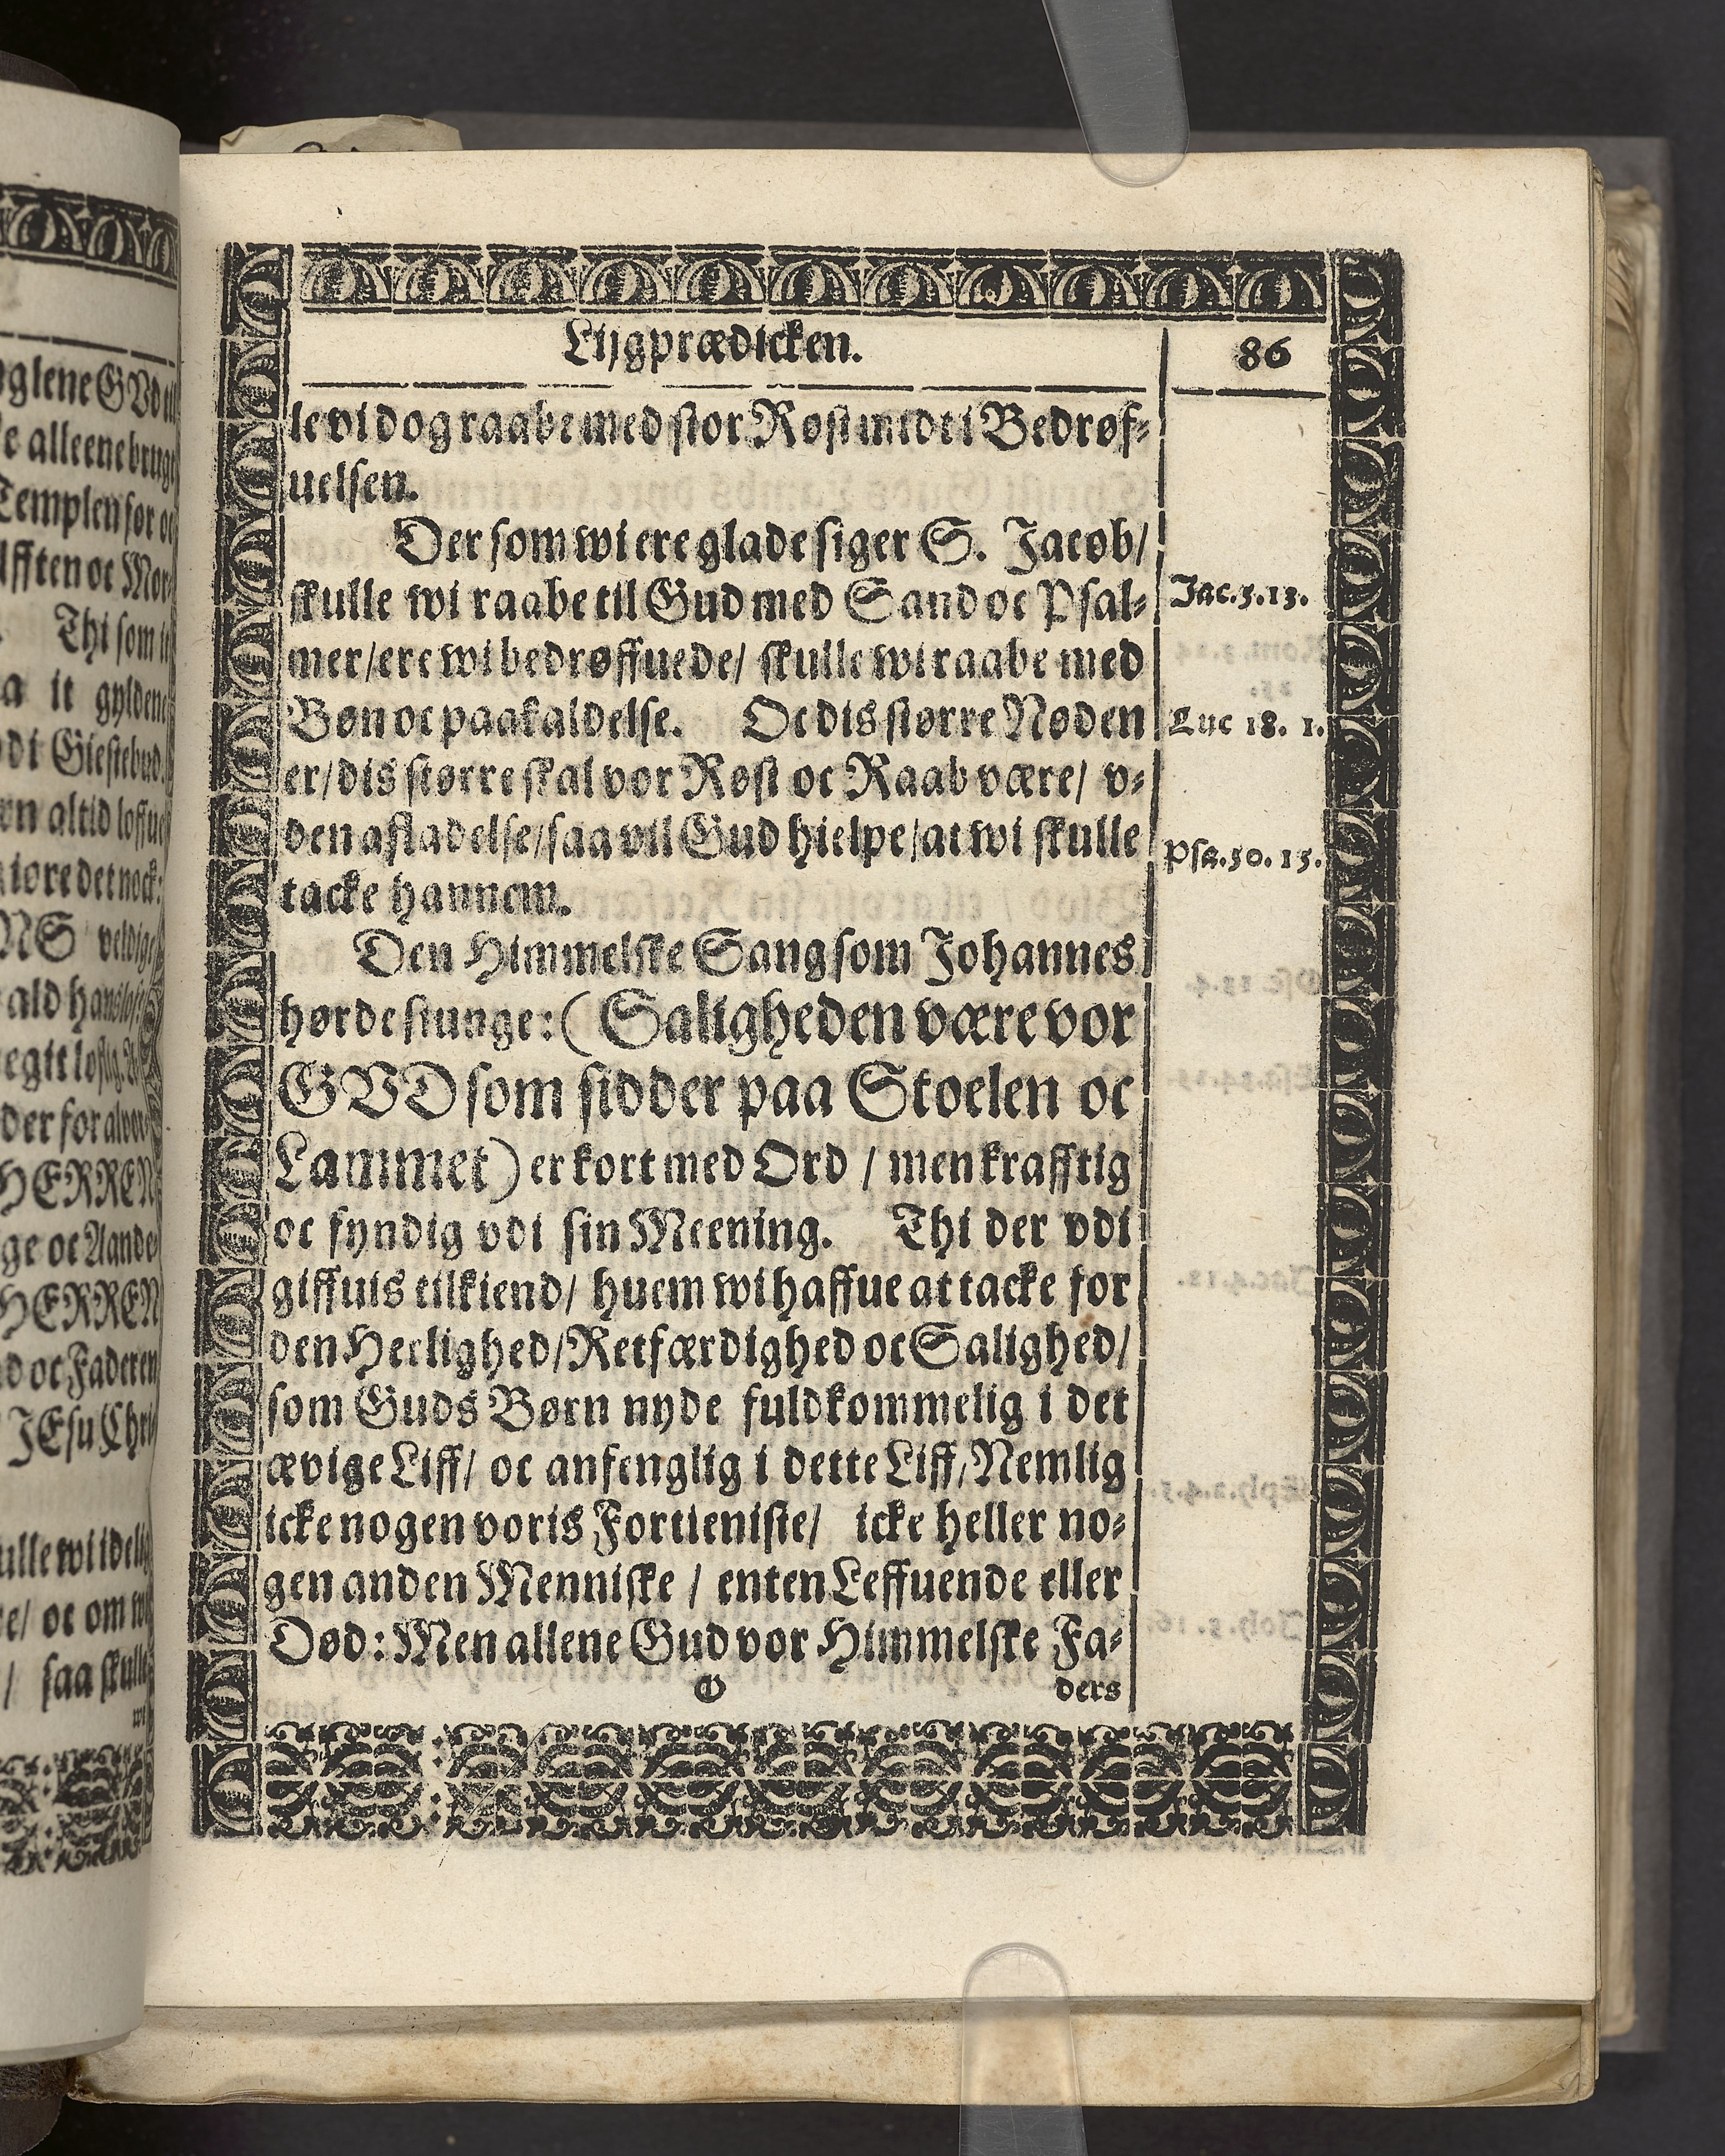 Lijgprædicken.
86
le vi dog raabe med stor Røst midt i Bedrøf-
uelsen.
Der som wi ere glade siger S. Jacob/
skulle wi raabe til Gud med Sand oc Psal-
Jac.5.13.
mer/ere wi bedrøffuede/ skulle wi raabe med
Bøn oc paakaldelse. Oc dis større Nøden
Luc 18. 1.
er/dis større skal vor Røst oc Raab være/ v-
den afladelse/saa vil Gud hielpe/at wi skulle
Psa.50.15.
tacke hannem.
Den Himmelske Sang som Johannes
hørde siunge: (Saligheden være vor
GVD som sidder paa Stoelen oc
Lammet) er kort med Ord / men krafftig
oc fyndig vdi sin Meening. Thi der vdi
giffuis tilkiend/ huem wi haffue at tacke for
den Herlighed/Retfærdighed oc Salighed/
som Guds Børn nyde fuldkommelig i det
ævige Liff/ oc anfenglig i dette Liff/Nemlig
icke nogen voris Fortieniste/ icke heller no-
gen anden Menniske / enten Leffuende eller
Død: Men allene Gud vor Himmelske Fa-
ders